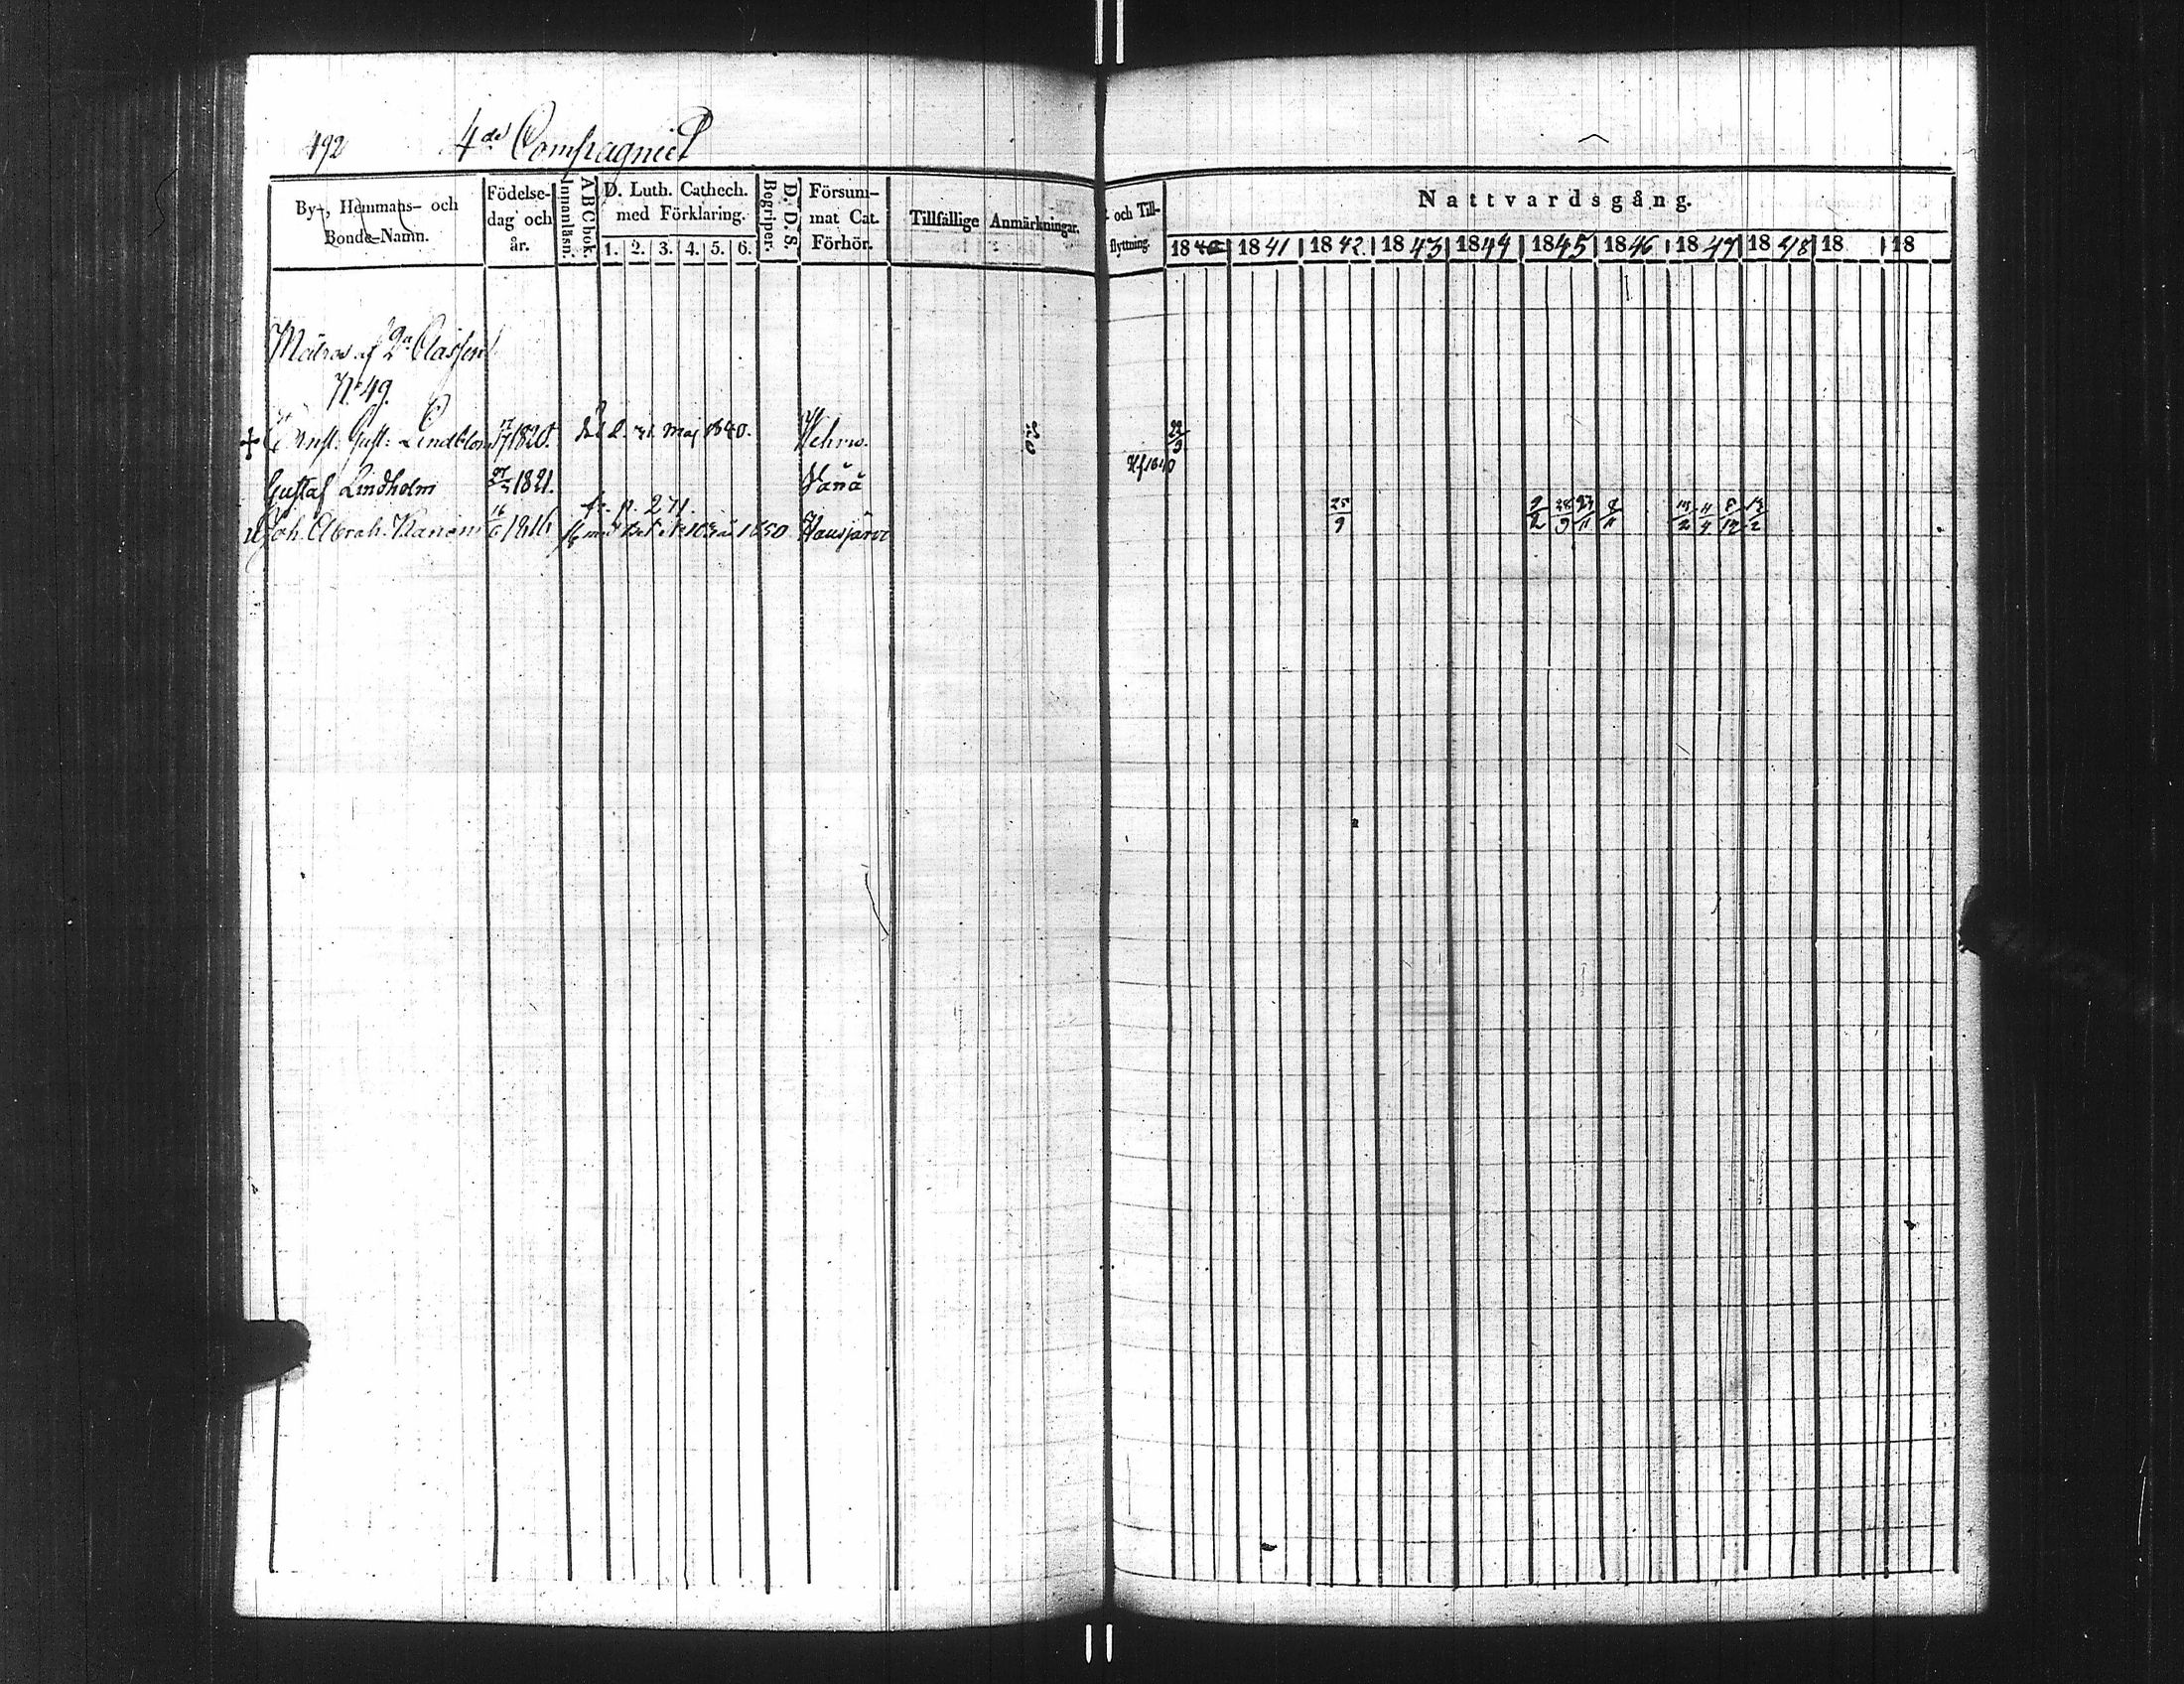 492 4de Compagniet
By-, Hemmans- och Bonde-Namn.
Födelse-dag och år.
Innanläsn.
ABCbok.
D. Luth. Cathech. med Förklaring.
1. 2. 3. 4. 5. 6.
Begriper.
D. D. S.
Försum-mat Cat. Förhör.
Tillfällige Anmärkningar.
och Till-flyttning.
Nattvardsgång.
1840 1841 1842. 1843 1844 1845 1846 1847 1848 18 18
Matros af 2a Classen
No 49.
Ernst Gust. Lindblom 1820. död d. 31 Maj 1840. 22/3
Gustaf Lindholm 1821. Vånå
fr. p. 271.
Joh. Abrah. 16/6 1816 1850 Hausjärvi 25/9 9/2 28/9 23/11 8/11 14/2 11/4 5/12 13/2